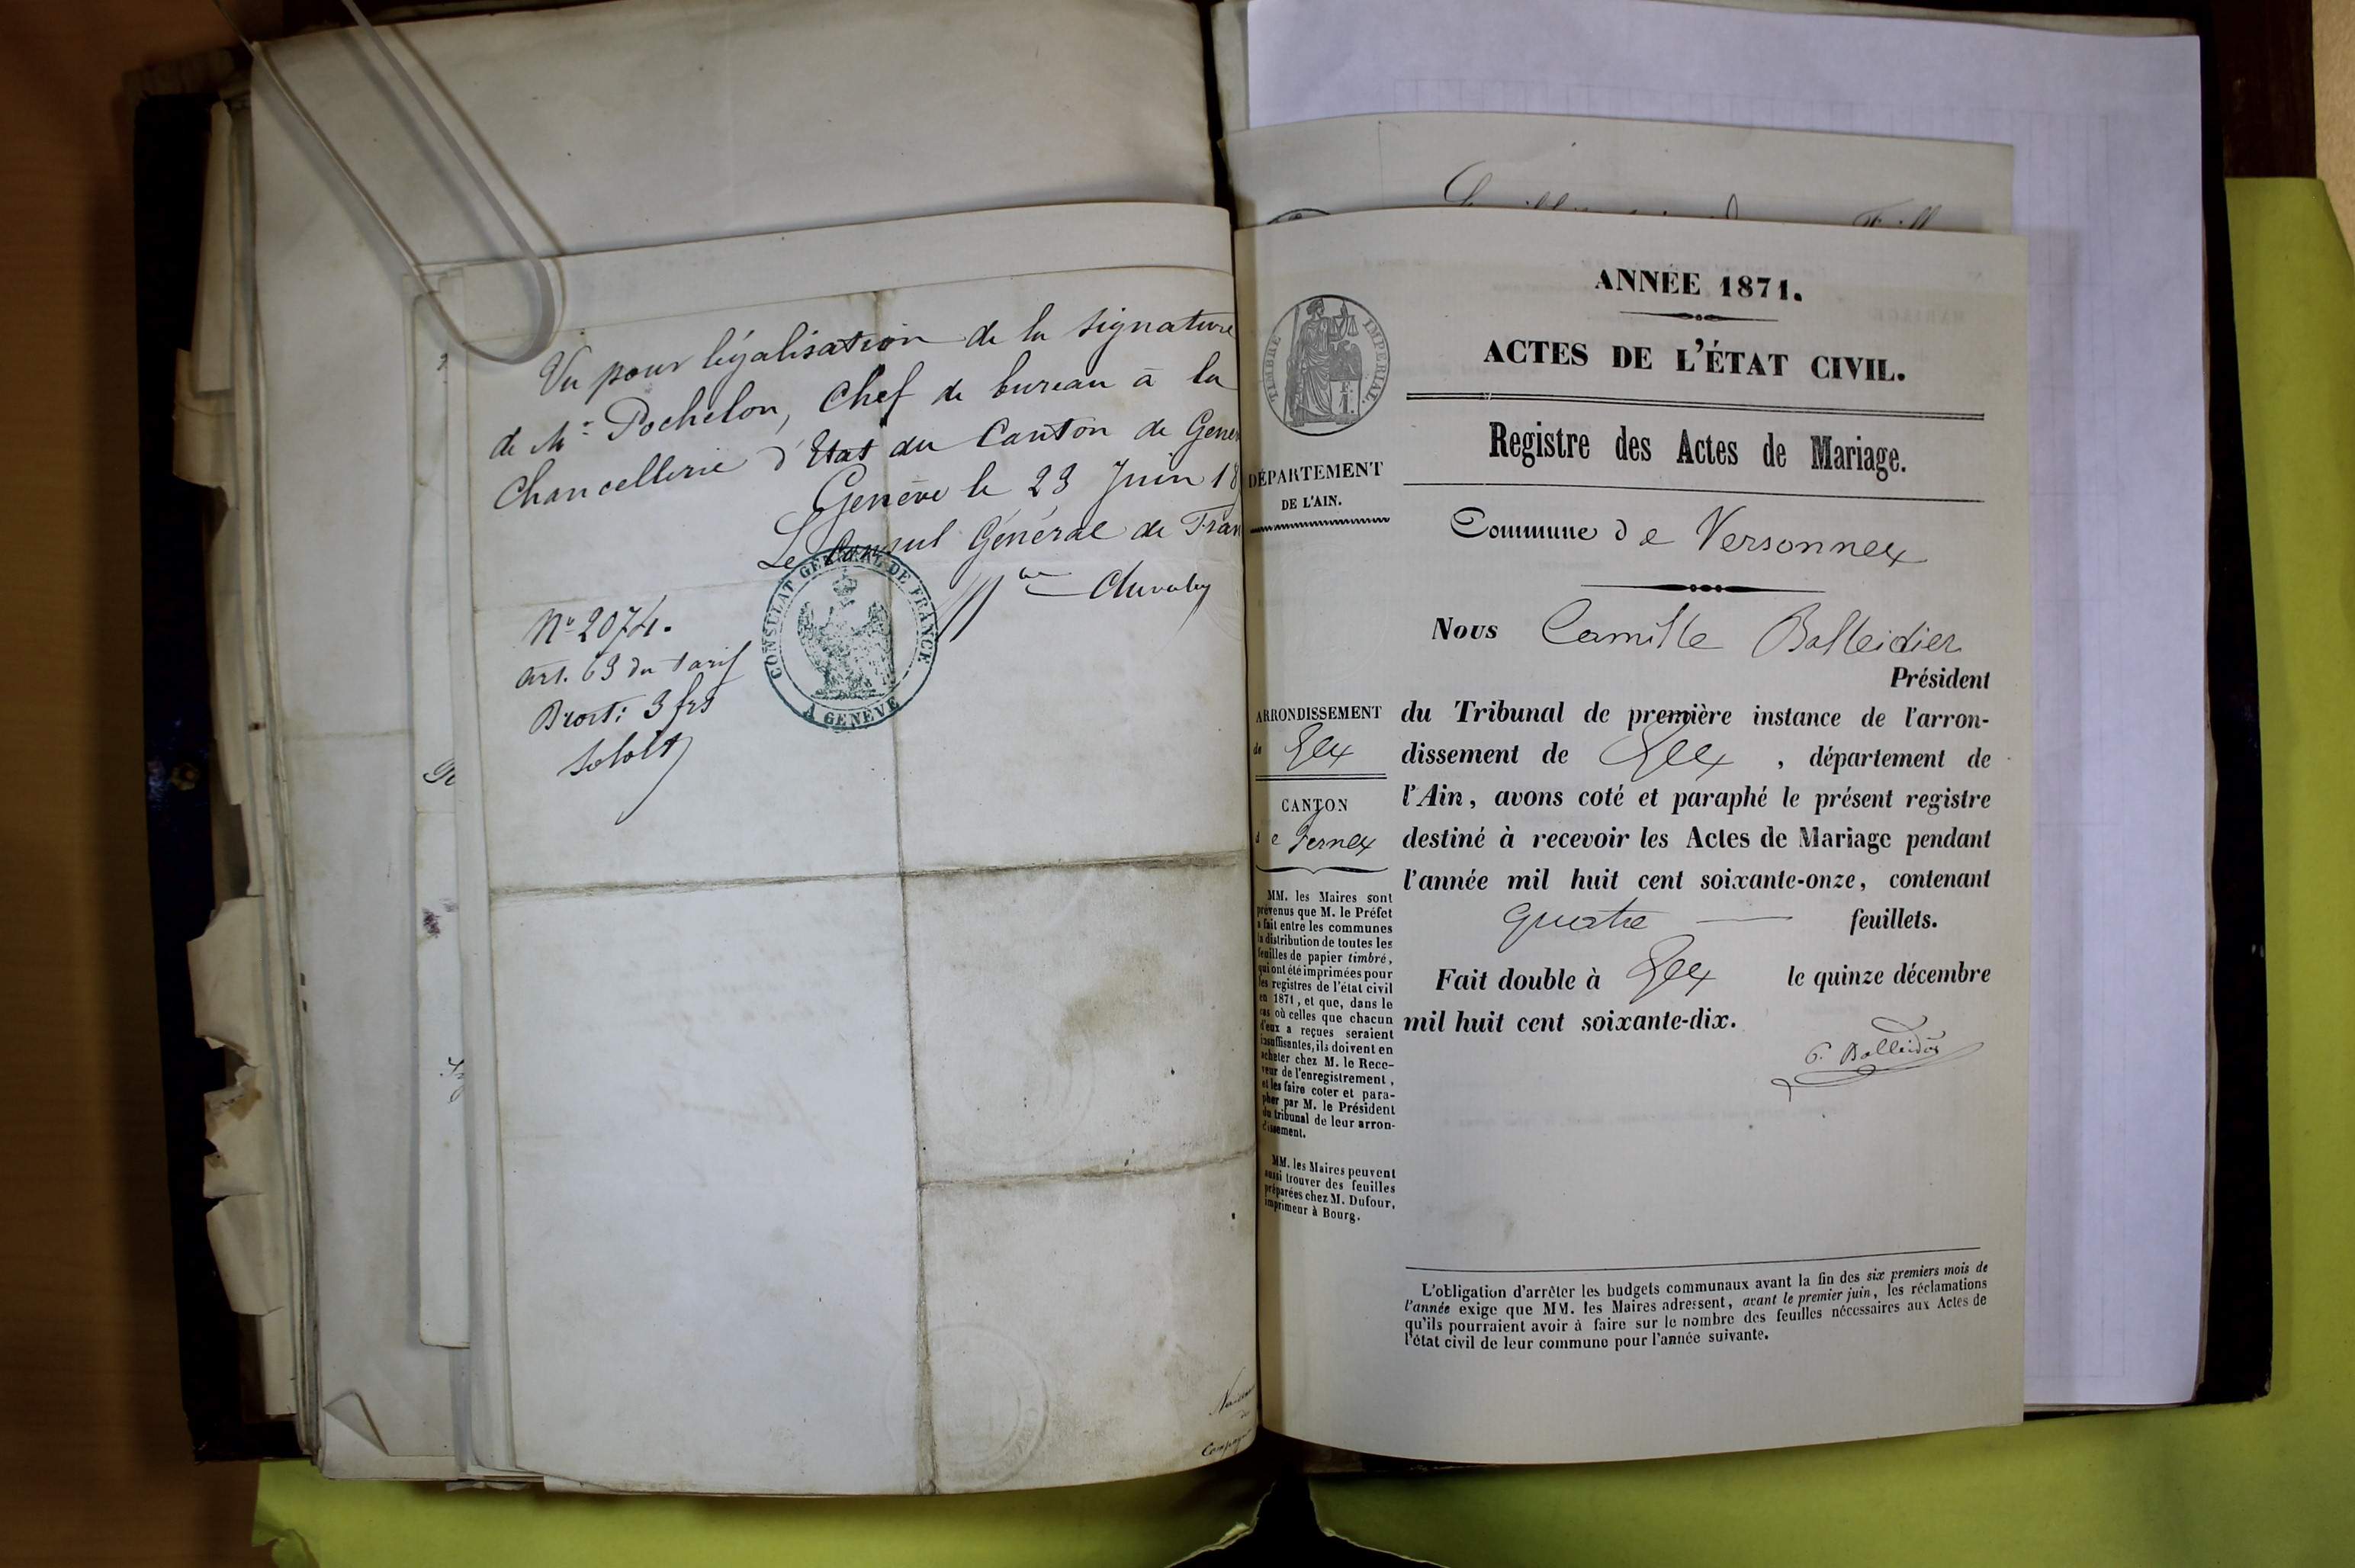 Vu pour légalisation de la signature
de Mr Pochelon, Chef de bureau à la
Chancellerie d'Etat du Canton de Genev
Genève le 23 Juin 18
Le Consul Général de Fran
CONSULAT GENERAL DE FRANCE
A GENEVE
No 2074.
Art. 63 du tarif
Droit: 3 frs
ANNÉE 1871.
ACTES DE L'ÉTAT CIVIL.
TIMBRE IMPERIAL.
Registre des Actes de Mariage.
DÉPARTEMENT
DE L'AIN.
Commune de Versonnex
Nous Camille Balleidier
Président
du Tribunal de première instance de l'arron-
dissement de Gex, département de
l'Ain, avons coté et paraphé le présent registre
destiné à recevoir les Actes de Mariage pendant
l'année mil huit cent soixante-onze, contenant
quatre — feuillets.
Fait double à Gex le quinze décembre
mil huit cent soixante-dix.
C. Balleidier
ARRONDISSEMENT
de Gex
CANTON
de Fernex
MM. les Maires sont
prévenus que M. le Préfet
a fait entre les communes
la distribution de toutes les
feuilles de papier timbré,
qui ont été imprimées pour
les registres de l'état civil
en 1871, et que, dans le
cas où celles que chacun
d'eux a reçues seraient
insuffisantes, ils doivent en
acheter chez M. le Rece-
veur de l'enregistrement,
et les faire coter et para-
pher par M. le Président
du tribunal de leur arron-
dissement.
MM. les Maires peuvent
aussi trouver des feuilles
préparées chez M. Dufour,
imprimeur à Bourg.
L'obligation d'arrêter les budgets communaux avant la fin des six premiers mois de
l'année exige que MM. les Maires adressent, avant le premier juin, les réclamations
qu'ils pourraient avoir à faire sur le nombre des feuilles nécessaires aux Actes de
l'état civil de leur commune pour l'année suivante.